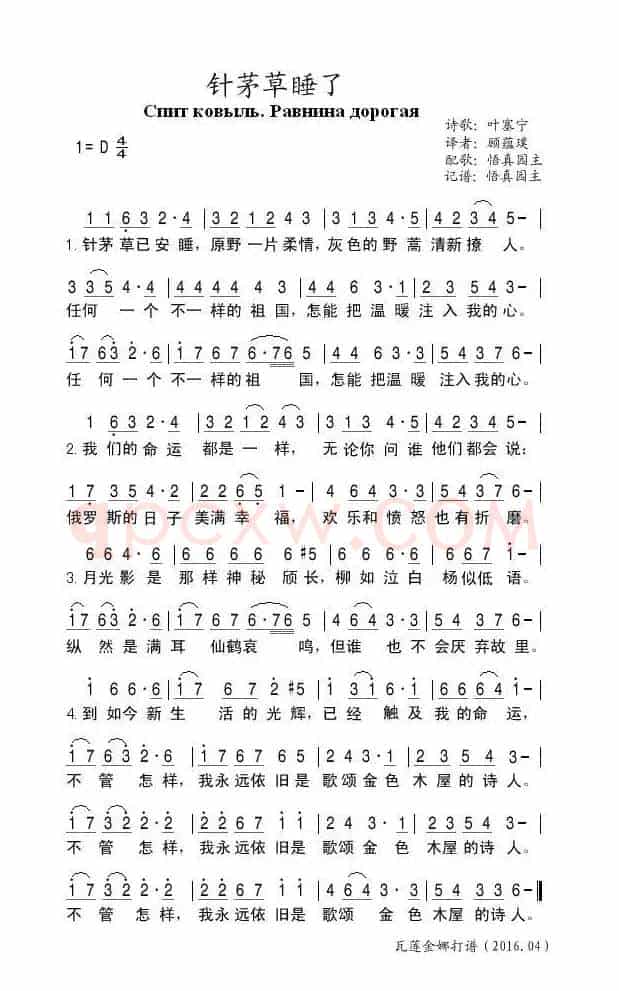 针茅草睡了
Спит ковыль. Равнина дорогая
诗歌：叶塞宁
1= D 4/4
译者：顾蕴璞
配歌：悟真园主
记谱：悟真园主
1 1 6 3 2·4 | 3 1 2 1 2 4 3 | 3 1 3 4·3 | 4 2 3 4 5- |
1.针茅草已安睡，原野一片柔情，灰色的野蒿清新撩人。
3 3 5 4 3·4 | 4 4 4 3 6·2 | 4 4 6 3·1 | 2 2 3 5 4 3- |
任何一个不一样的祖国，怎能把温暖注入我的心。
1 7 6 3 2·6 | 1 7 6 7 6·7 6 5 | 4 4 6 3·3 | 5 4 3 7 6- |
任何一个不一样的祖国，怎能把温暖注入我的心。
1 6 3 2·4 | 3 2 1 2 4 3 | 3 1 3 4·3 | 4 2 3 4 5- |
2.我们的命运都是一样，无论你问谁他们都会说：
1 7 3 5 4·2 | 2 2 6 5 1- | 4 6 4 3·3 | 5 4 3 7 6- |
俄罗斯的日子美满幸福，欢乐和愤怒也有折磨。
qpcxw.COM
6 6 4·6 | 3 6 6 6 6 #5 | 6 1 6 3·1 | 6 6 6 7 1- |
3.月光影是那样神秘颀长，柳如泣白杨似低语。
1 7 6 3 2·6 | 1 7 6 7 6·7 6 5 | 4 6 4 3·3 | 5 4 3 7 6- |
纵然是满耳仙鹤哀鸣，但谁也不会厌弃故里。
1 6 6 6·6 | 1 7 6 7 2 #5 | 1 3 1 6·1 | 6 6 6 4 1- |
4.到如今新生活的光辉，已经触及我的命运，
1 7 6 3 2·6 | 1 7 6 7 6 7 | 2 4 3·1 | 2 3 5 4 3- |
不管怎样，我永远依旧是歌颂金色木屋的诗人。
1 7 3 2 2·2 | 2 2 6 7 1 1 | 2 4 3·3 | 5 4 3 2 3- |
不管怎样，我永远依旧是歌颂金色木屋的诗人。
1 7 3 2 2·2 | 2 2 6 7 1 1 | 4 6 4 3·3 | 5 4 3 7 6- ‖
不管怎样，我永远依旧是歌颂金色木屋的诗人。
瓦莲金娜打谱（2016.04）